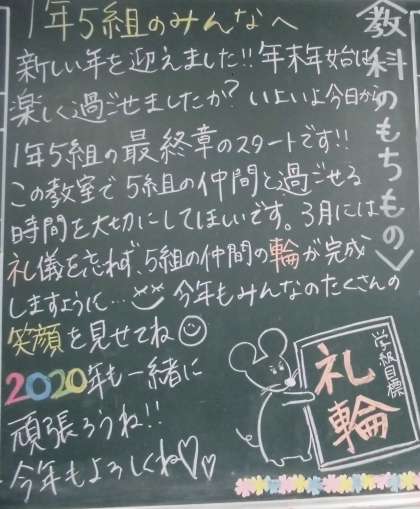 1年5組のみんなへ
新しい年を迎えました!!年末年始は
楽しく過ごせましたか?いよいよ今日から
1年5組の最終章のスタートです!!
この教室で5組の仲間と過ごせる
時間を大切にしてほしいです。3月には
礼儀を忘れず、5組の仲間の輪が完成
しますように…今年もみんなのたくさんの
笑顔を見せてね
2020年も一緒に
頑張ろうね!!
今年もよろしくね♡♡
〈教科のもちもの〉
学級目標
礼
輪